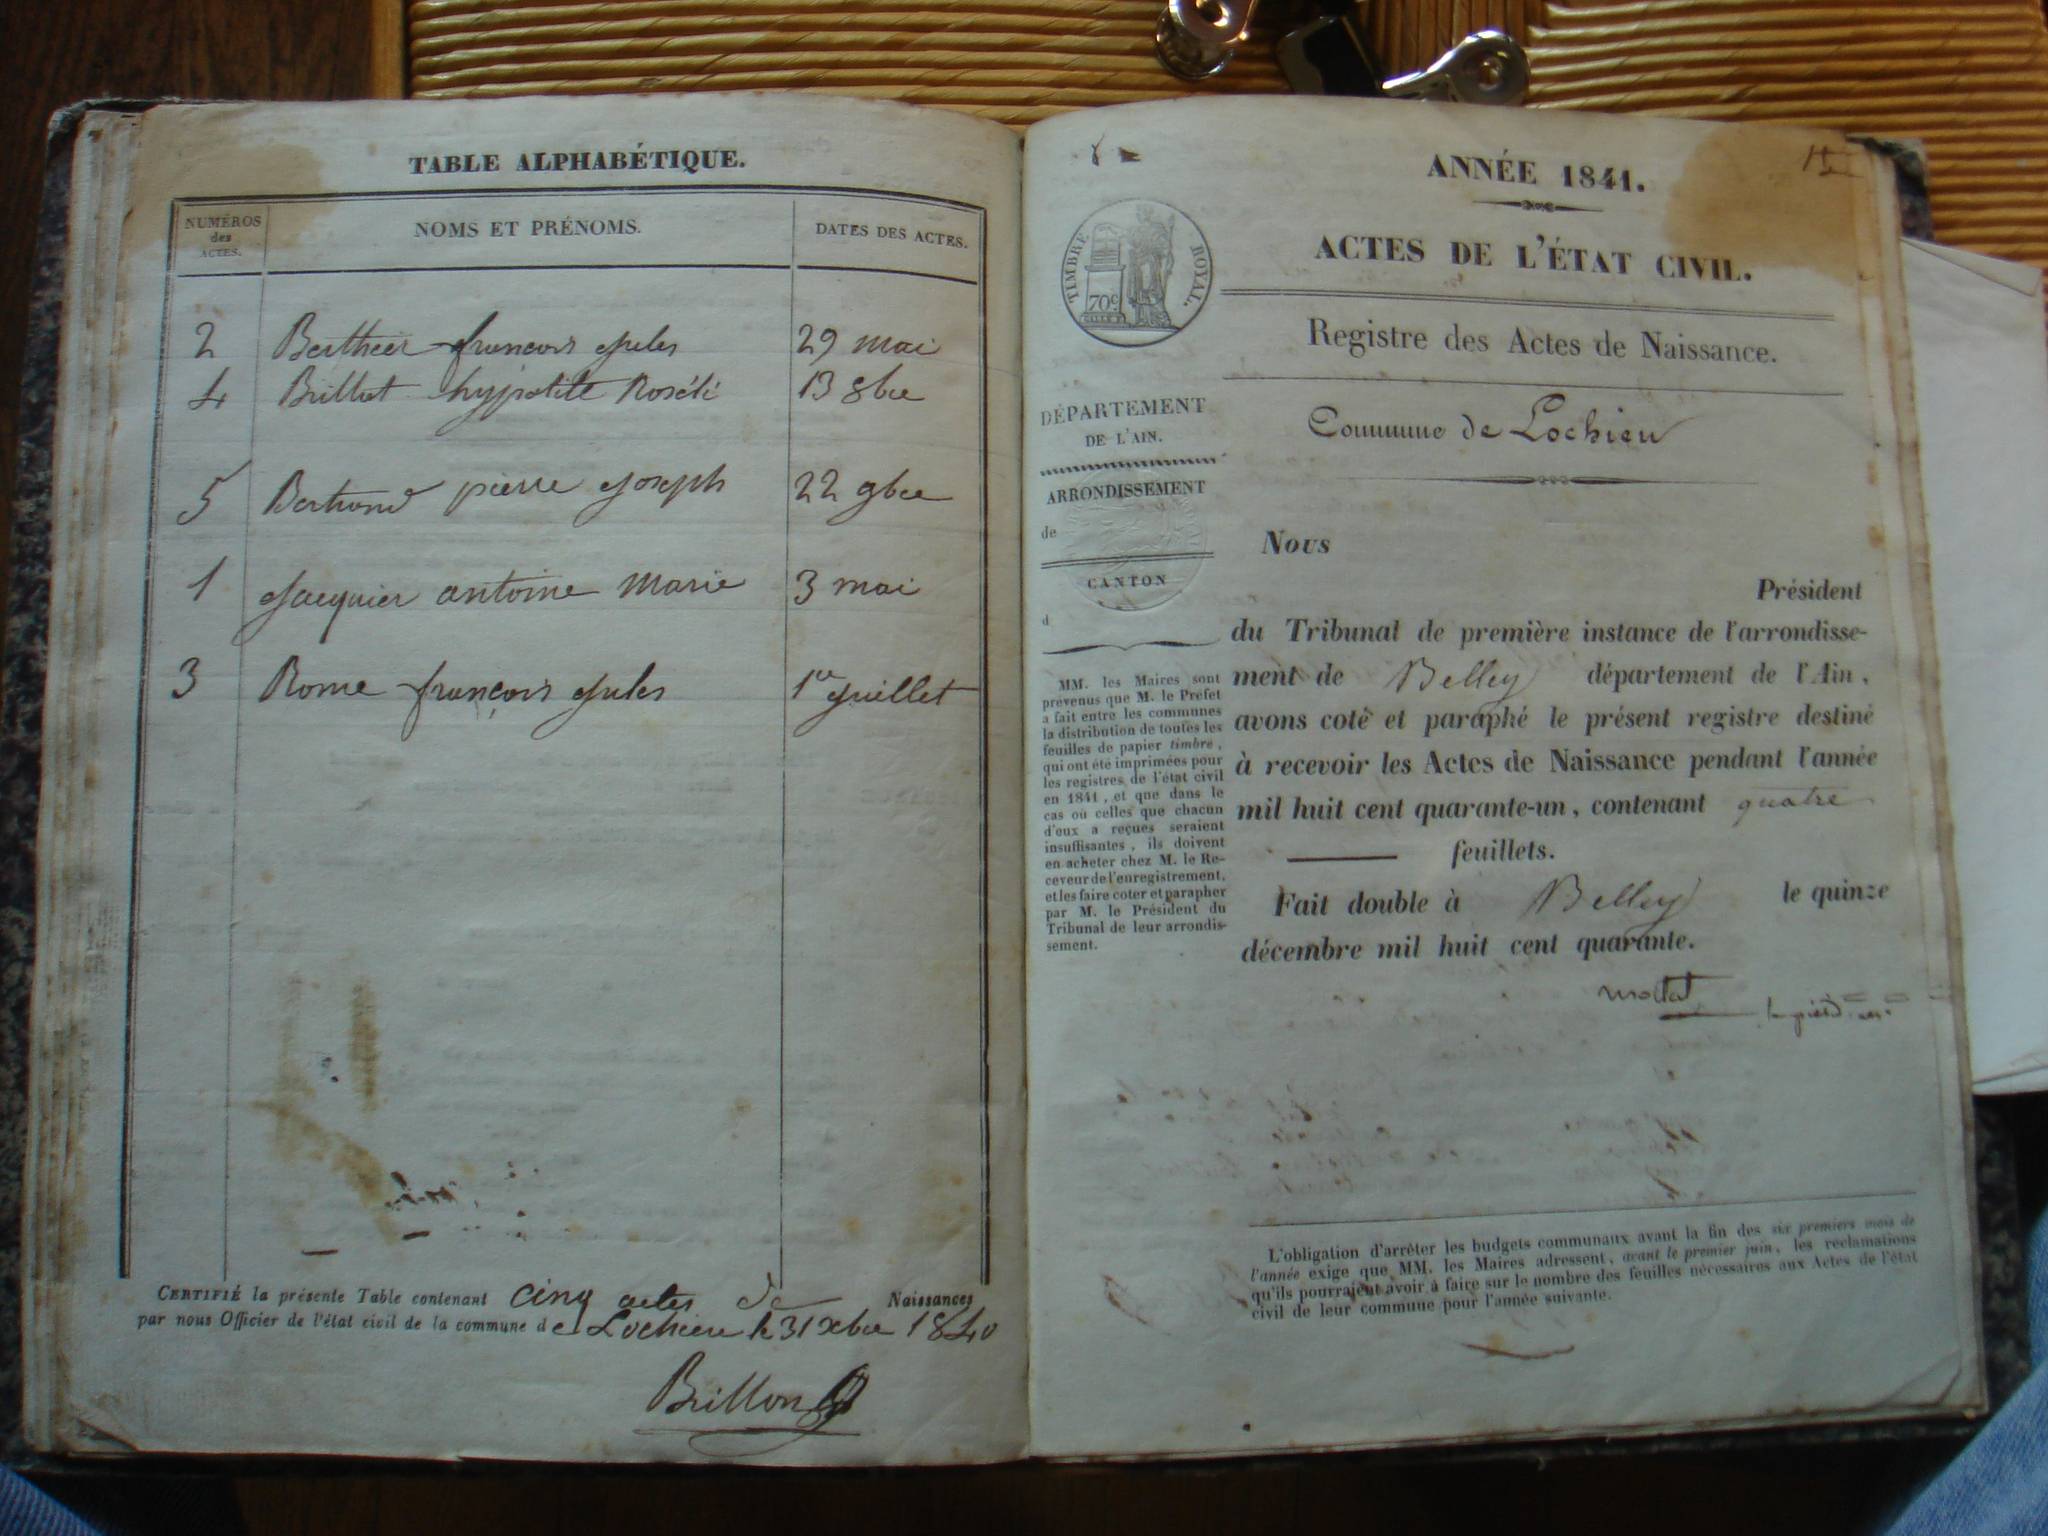 TABLE ALPHABÉTIQUE.
NUMÉROS
des
ACTES.
NOMS ET PRÉNOMS.
DATES DES ACTES.
2 Berthier françois jules 29 mai
4 Brillat hypolite Roséli 13 8bre
5 Bertrand pierre joseph 22 9bre
1 Jacquier antoine Marie 3 mai
3 Rome françois jules 1er juillet
CERTIFIÉ la présente Table contenant cinq actes de Naissances
par nous Officier de l'état civil de la commune de Lochieu le 31 Xbre 1840
Brillon
ANNÉE 1841.
ACTES DE L'ÉTAT CIVIL.
TIMBRE ROYAL.
70c
Registre des Actes de Naissance.
Commune de Lochieu
DÉPARTEMENT
DE L'AIN.
ARRONDISSEMENT
de
CANTON
d
MM. les Maires sont
prévenus que M. le Préfet
a fait entre les communes
la distribution de toutes les
feuilles de papier timbré,
qui ont été imprimées pour
les registres de l'état civil
en 1841, et que dans le
cas où celles que chacun
d'eux a reçues seraient
insuffisantes, ils doivent
en acheter chez M. le Re-
ceveur de l'enregistrement,
et les faire coter et parapher
par M. le Président du
Tribunal de leur arrondis-
sement.
Nous
Président
du Tribunal de première instance de l'arrondisse-
ment de Belley département de l'Ain,
avons coté et paraphé le présent registre destiné
à recevoir les Actes de Naissance pendant l'année
mil huit cent quarante-un, contenant quatre
feuillets.
Fait double à Belley le quinze
décembre mil huit cent quarante.
L'obligation d'arrêter les budgets communaux avant la fin des six premiers mois de
l'année exige que MM. les Maires adressent, avant le premier juin, les réclamations
qu'ils pourraient avoir à faire sur le nombre des feuilles nécessaires aux Actes de l'état
civil de leur commune pour l'année suivante.